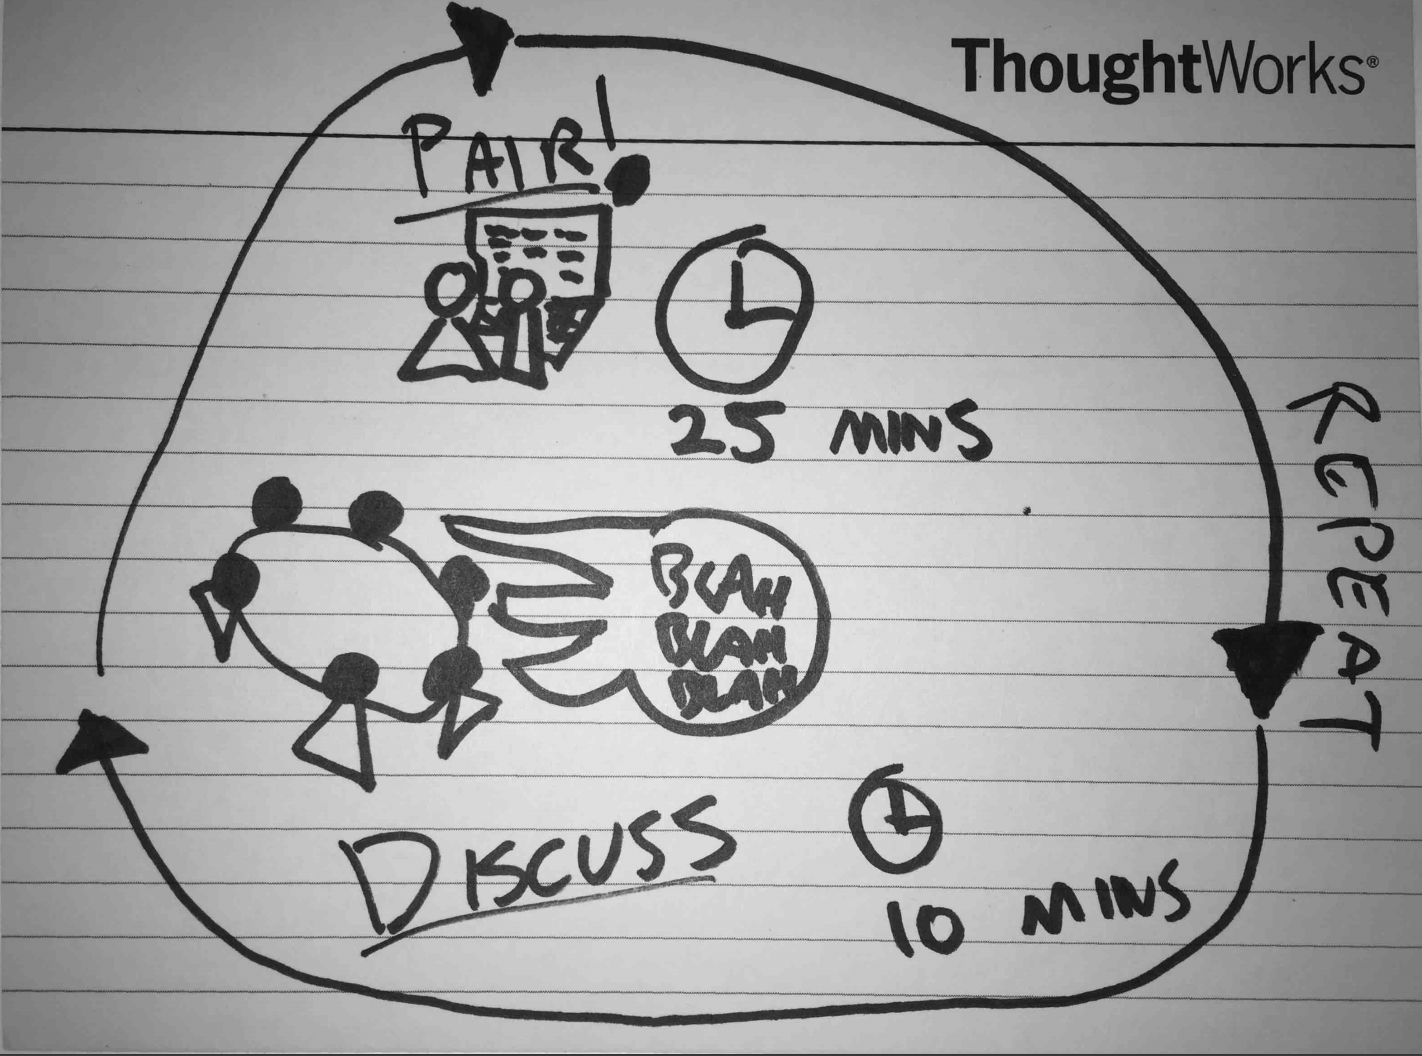 ThoughtWorks®
PAIR!
25 MINS
REPEAT
BLAH
BLAH
BLAH
DISCUSS
10 MINS